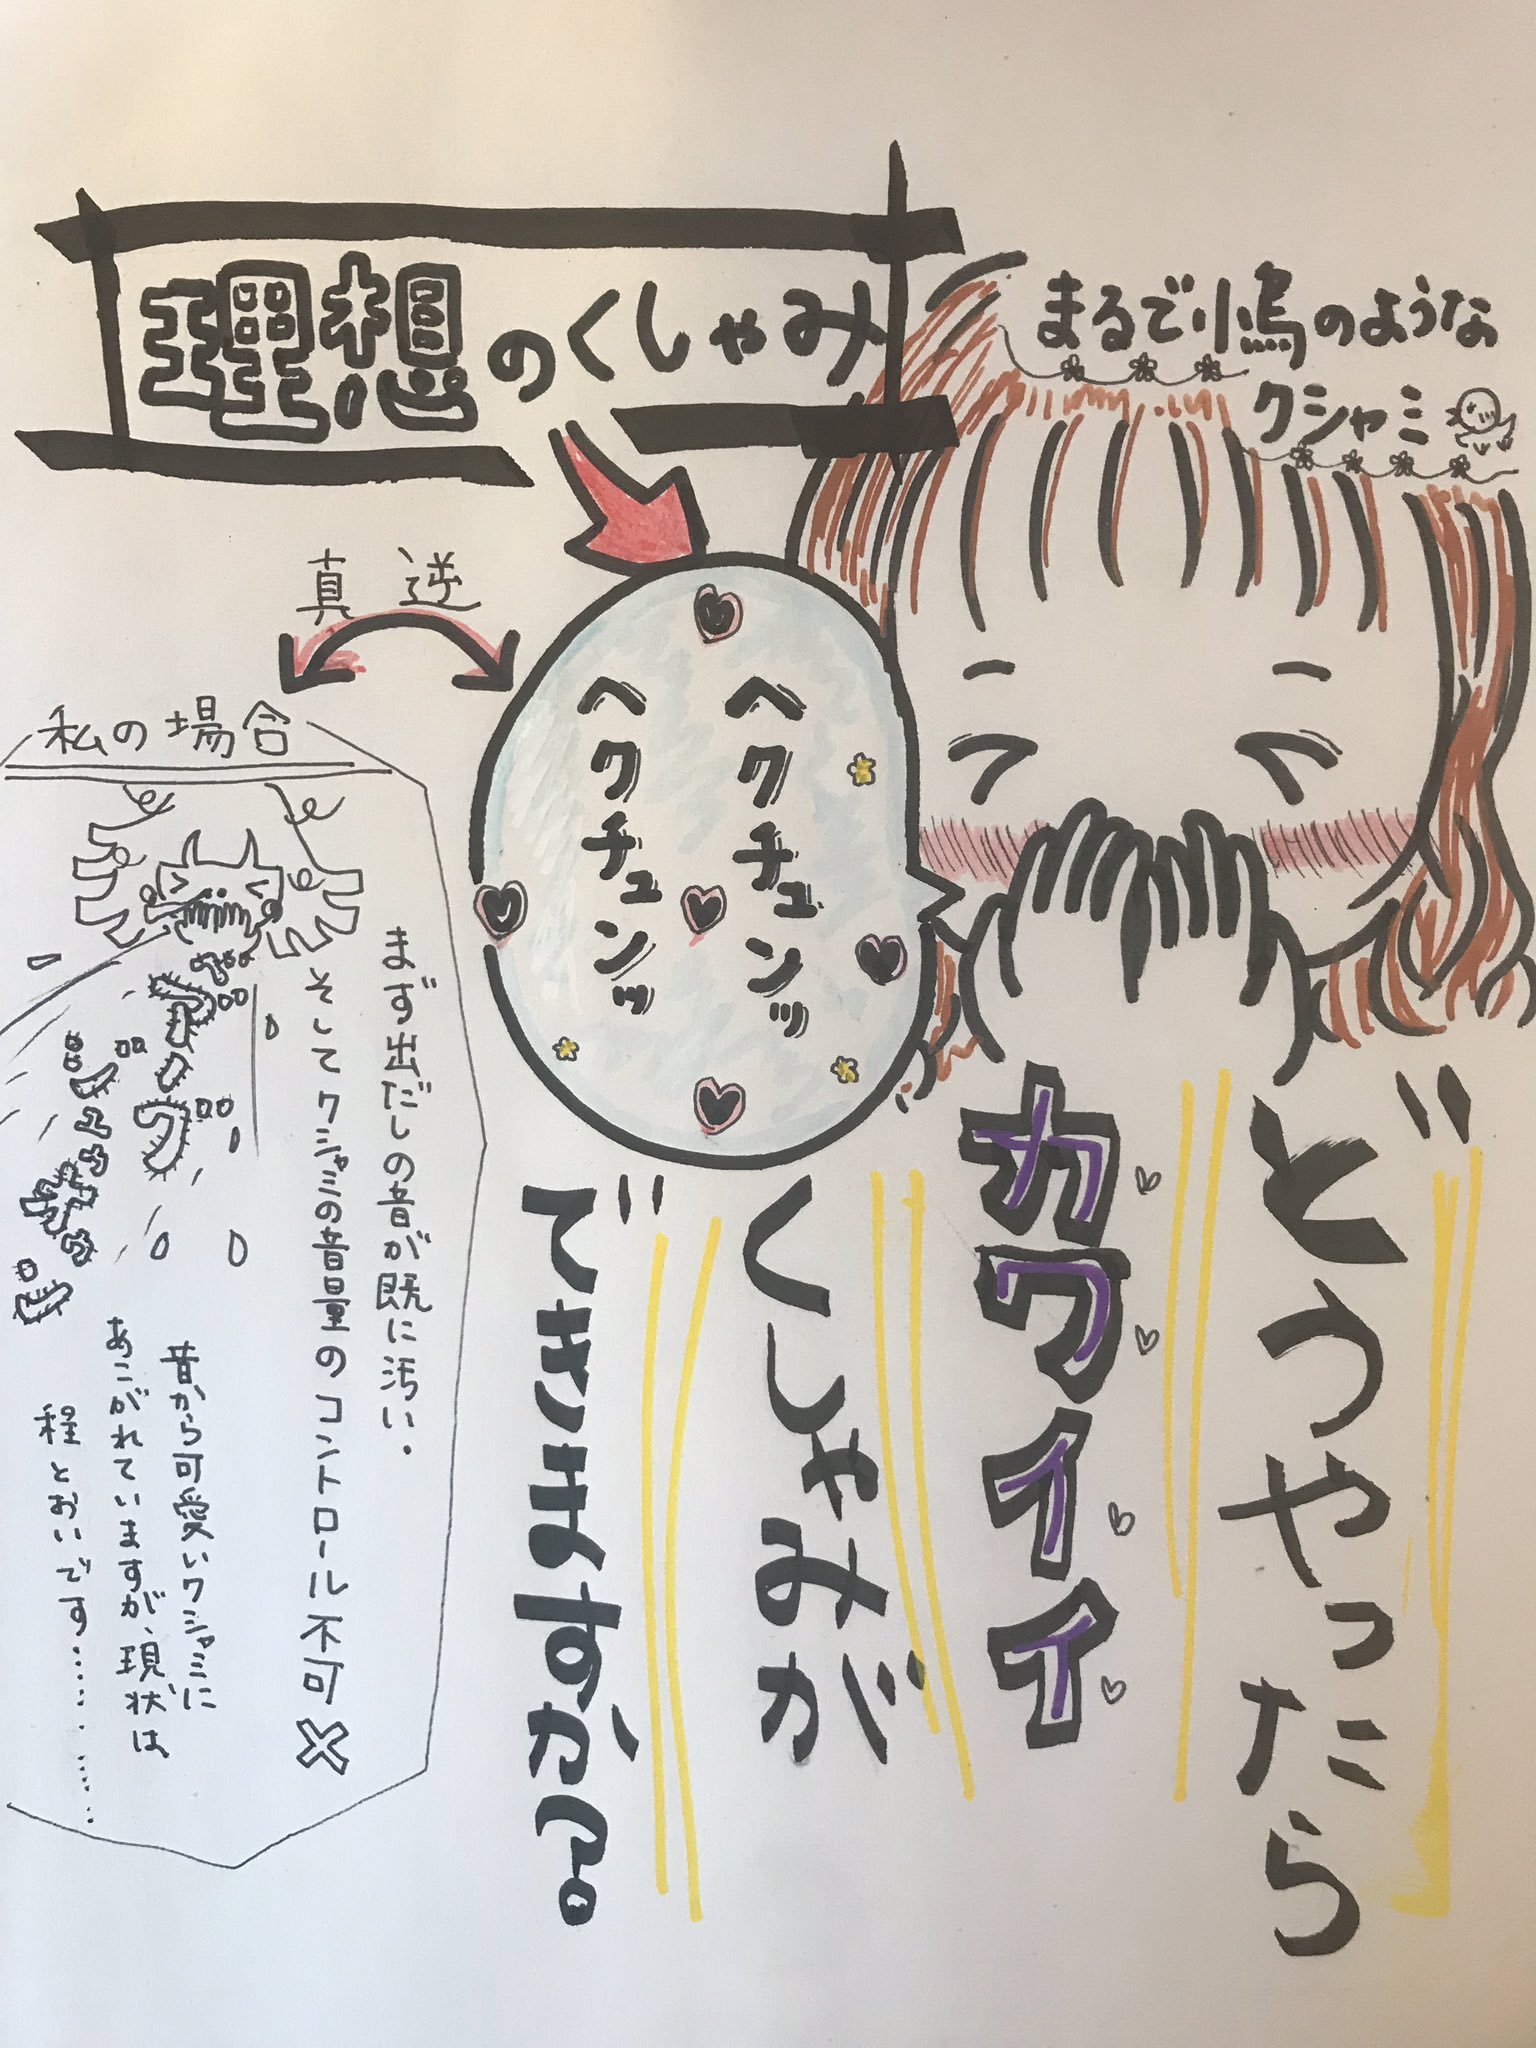 まるで小鳥のような
クシャミ
理想のくしゃみ
ヘクチュンッ
ヘクチュンッ
どうやったら
カワイイ
くしゃみが
できますか?
真逆
私の場合
まず出だしの音が既に汚い.
そしてクシャミの音量のコントロール不可×
昔から可愛いクシャミに
あこがれていますが、現状は
程とおいです……………